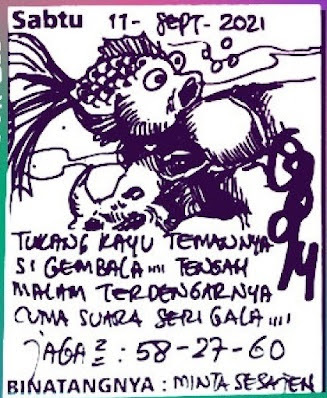 Sabtu 11 - SEPT - 2021
TUKANG KAYU TEMANNYA
SI GEMBALA .... TENGAH
MALAM TERDENGARNYA
CUMA SUARA SERIGALA ....
JAGA² : 58-27-60
BINATANGNYA : MINTA SESAJEN